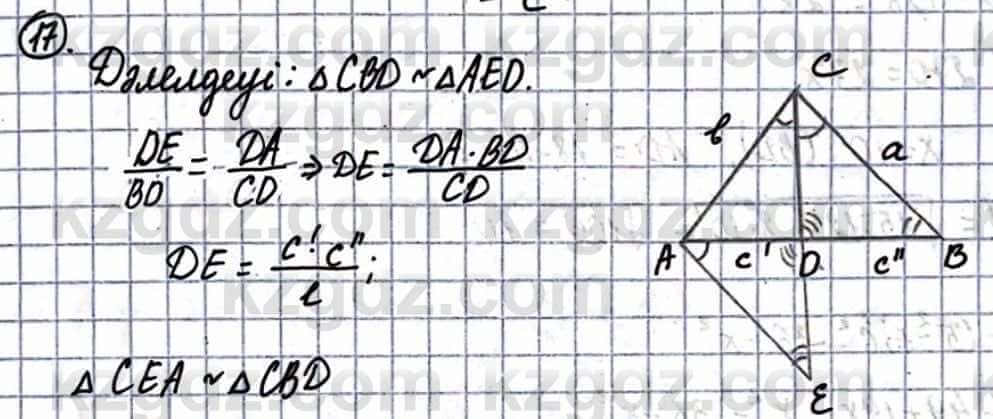 17.
Дәлелдеуі: △CBD ~ △AED.
DE/BD = DA/CD ⇒ DE = DA·BD/CD
DE = c'c''/l;
△CEA ~ △CBD
C
b
a
A c' D c'' B
E
kzgdz.com